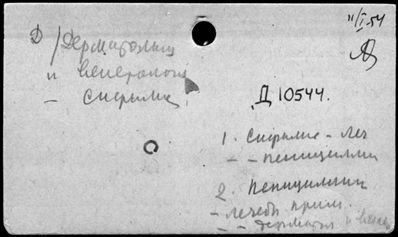 11/I.54
Д/Дерматолог
и венеролог
- сифилис
Д 10544.
1. Сифилис - леч
- - пенициллин
2. Пенициллин
- лечебн. прим.
- - дерматол и венер